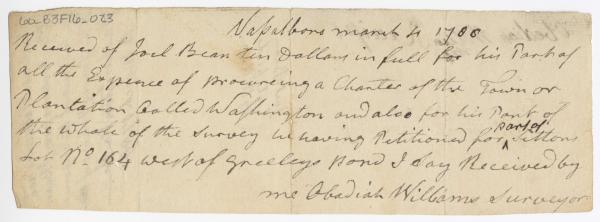 6a-B3F16-023
Vasalboro march 4 1788
Received of Joel Bean ten Dollars in full for his Part of
all the Expence of Procureing a Charter of the Town or
Plantation Called Washington and also for his Part of
the whole of the Survey he having Petitioned for
part of
Lot No 164 west of Greeleys Pond I Say Received by
me Obadiah Williams Surveyor